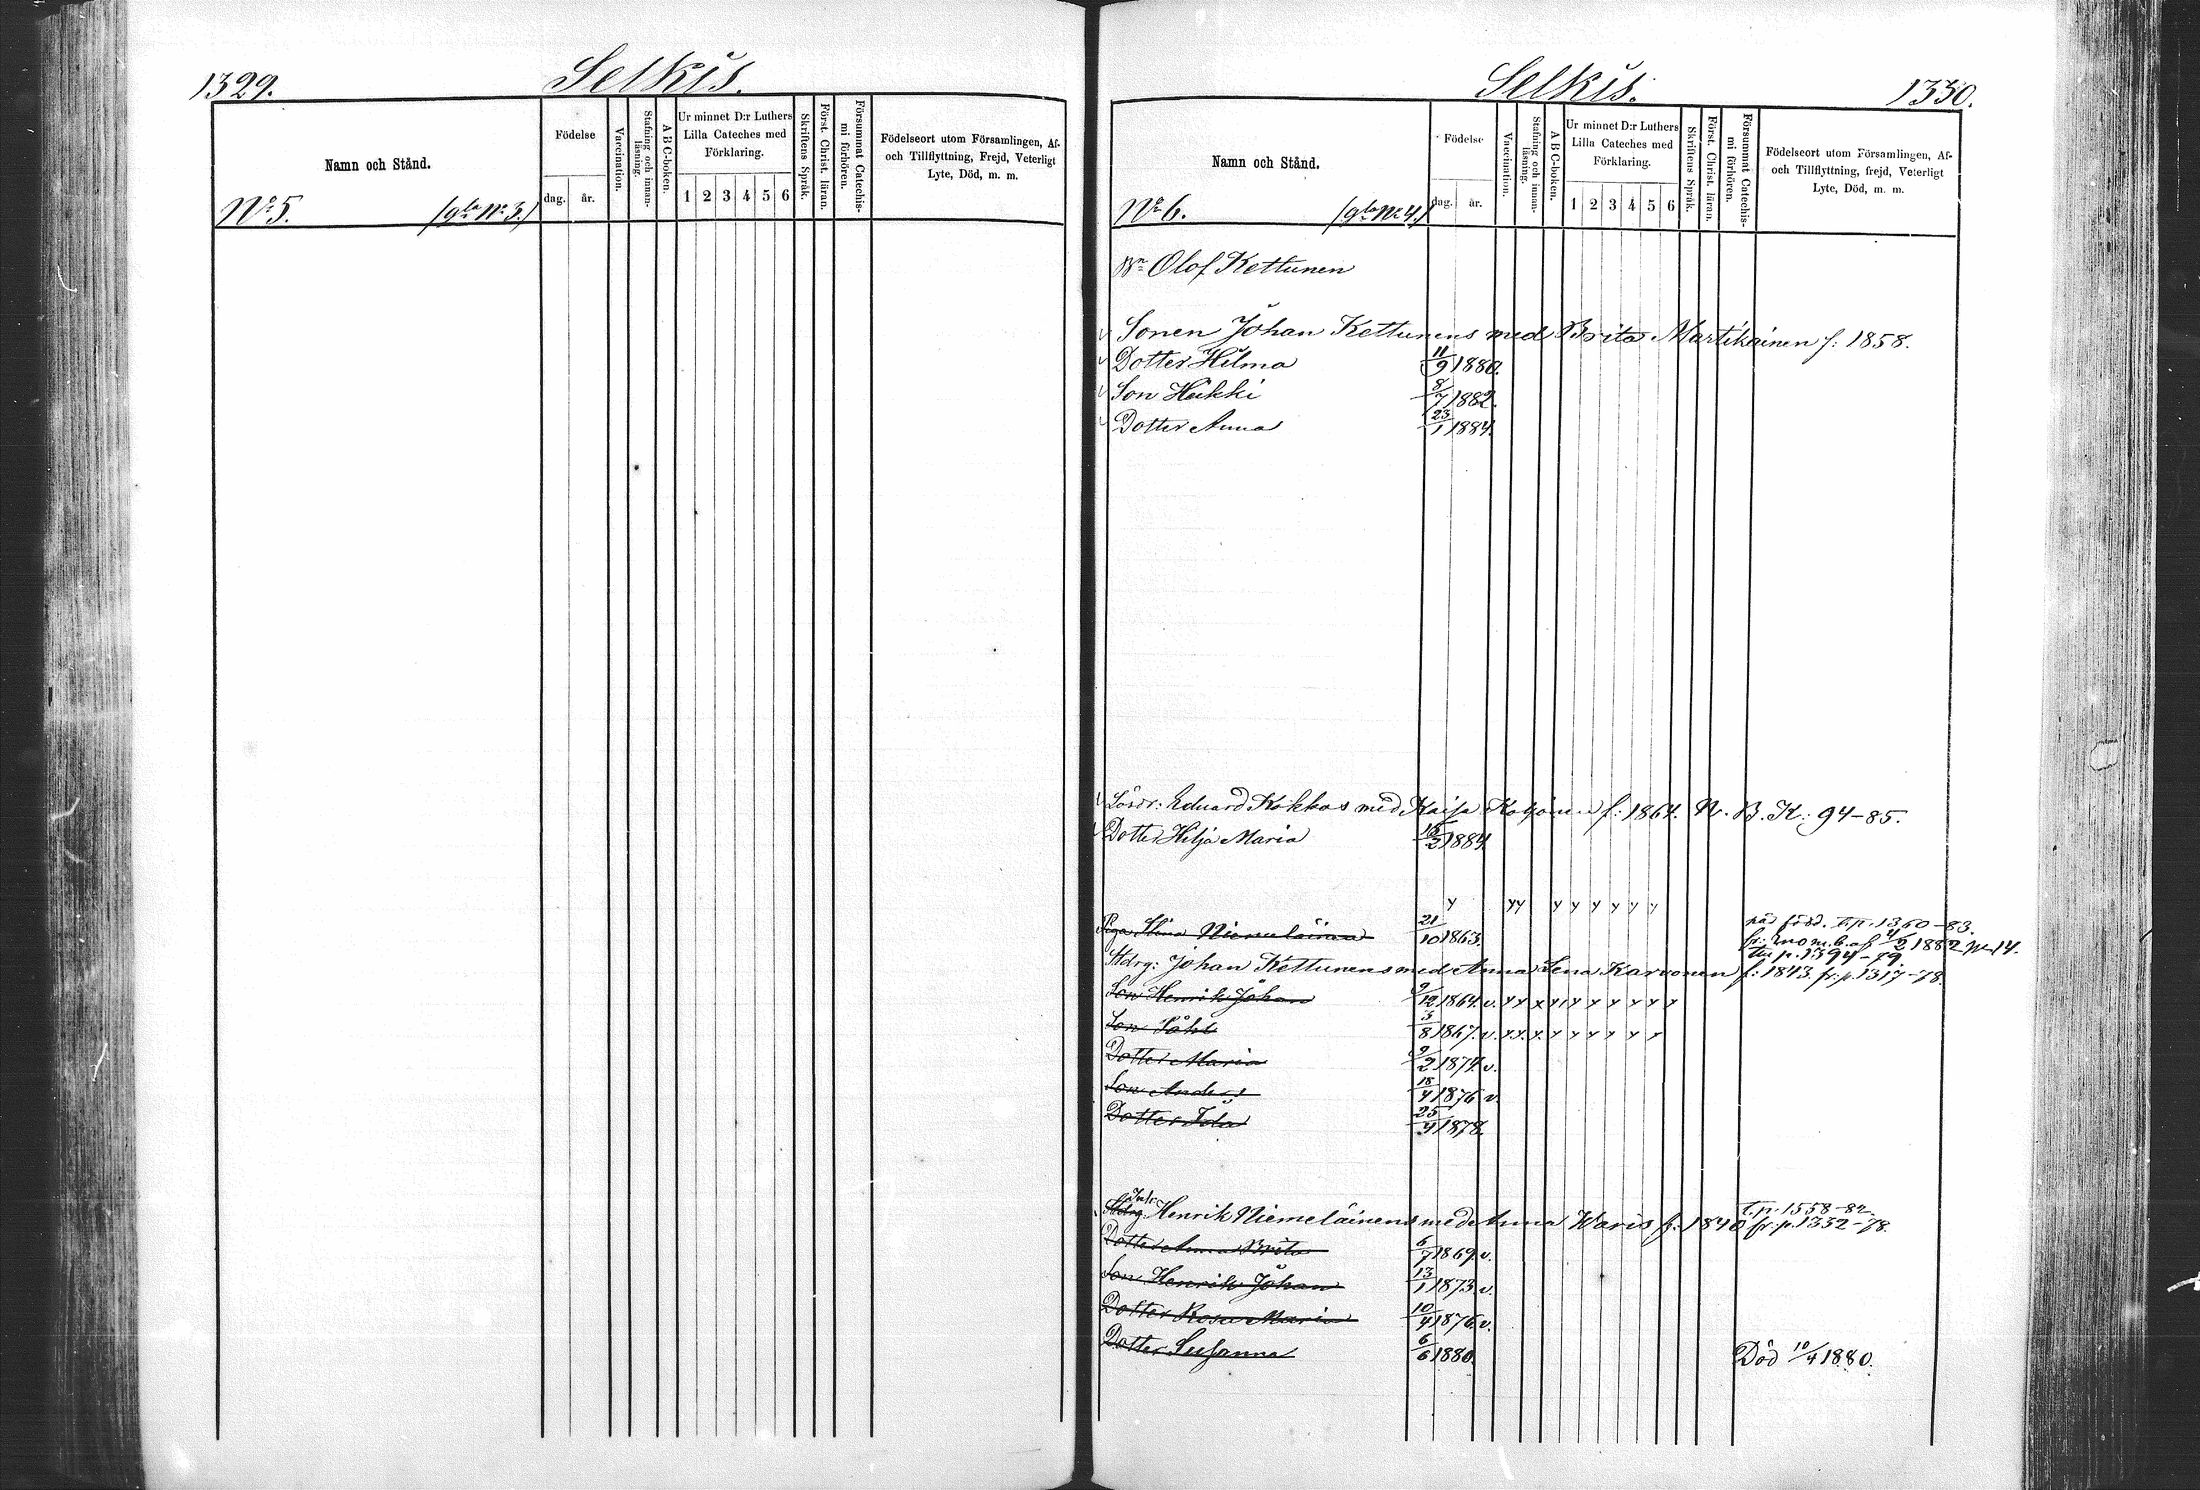 1329.
Selkis.
Namn och Stånd.
Födelse
dag.
år.
Vaccination.
Stafning och innan-läsning.
A B C-boken.
Ur minnet D:r Luthers
Lilla Cateches med
Förklaring.
1 2 3 4 5 6
Skriftens Språk.
Först. Christ. läran.
Försummat Catechis-
mi förhören.
Födelseort utom Församlingen, Af-
och Tillflyttning, Frejd, Veterligt
Lyte, Död, m. m.
No 5. (gla No 3.)
Selkis.
1330.
Namn och Stånd.
Födelse
dag.
år.
Vaccination.
Stafning och innan-läsning.
A B C-boken.
Ur minnet D:r Luthers
Lilla Cateches med
Förklaring.
1 2 3 4 5 6
Skriftens Språk.
Först. Christ. läran.
Försummat Catechis-
mi förhören.
Födelseort utom Församlingen, Af-
och Tillflyttning, frejd, Veterligt
Lyte, Död, m. m.
No 6. (gla No 4.)
Bn Olof Kettunen
Sonen Johan Kettunens med Brita Martikainen f: 1858.
Dotter Hilma 11/9 1880.
Son Heikki 8/7 1882.
Dotter Anna 23/1 1884.
Lösdr: Eduard Kokkos med Kaisa f: 1864. N. B. K: 94-85.
Dotter Hilja Maria 1884.
Piga Stina Niemeläinen 21/10 1863. t.p. 1360-83.
fr: m.b. af 4/2 1882 No 14.
t. p. 1394-79.
Stdrg: Johan Kettunens med Anna Lena Karvonen f: 1843. fr: p. 1317-78.
Son Henrik Johan 9/12 1864. v.
Son 5/8 1867. v.
Dotter Maria 9/2 1874. v.
Son Anders 18/4 1876 v.
Dotter Ida 25/4 1878.
t. p. 1558-82.
Stdrg: Henrik Niemeläinens med Anna Waris f: 1840 fr. p. 1332-78.
Dotter Anna Brita 6/7 1869. v.
Son Henrik Johan 13/1 1873. v.
Dotter Rosa Maria 10/4 1876. v.
Dotter Susanna 6/6 1880. Död 10/4 1880.